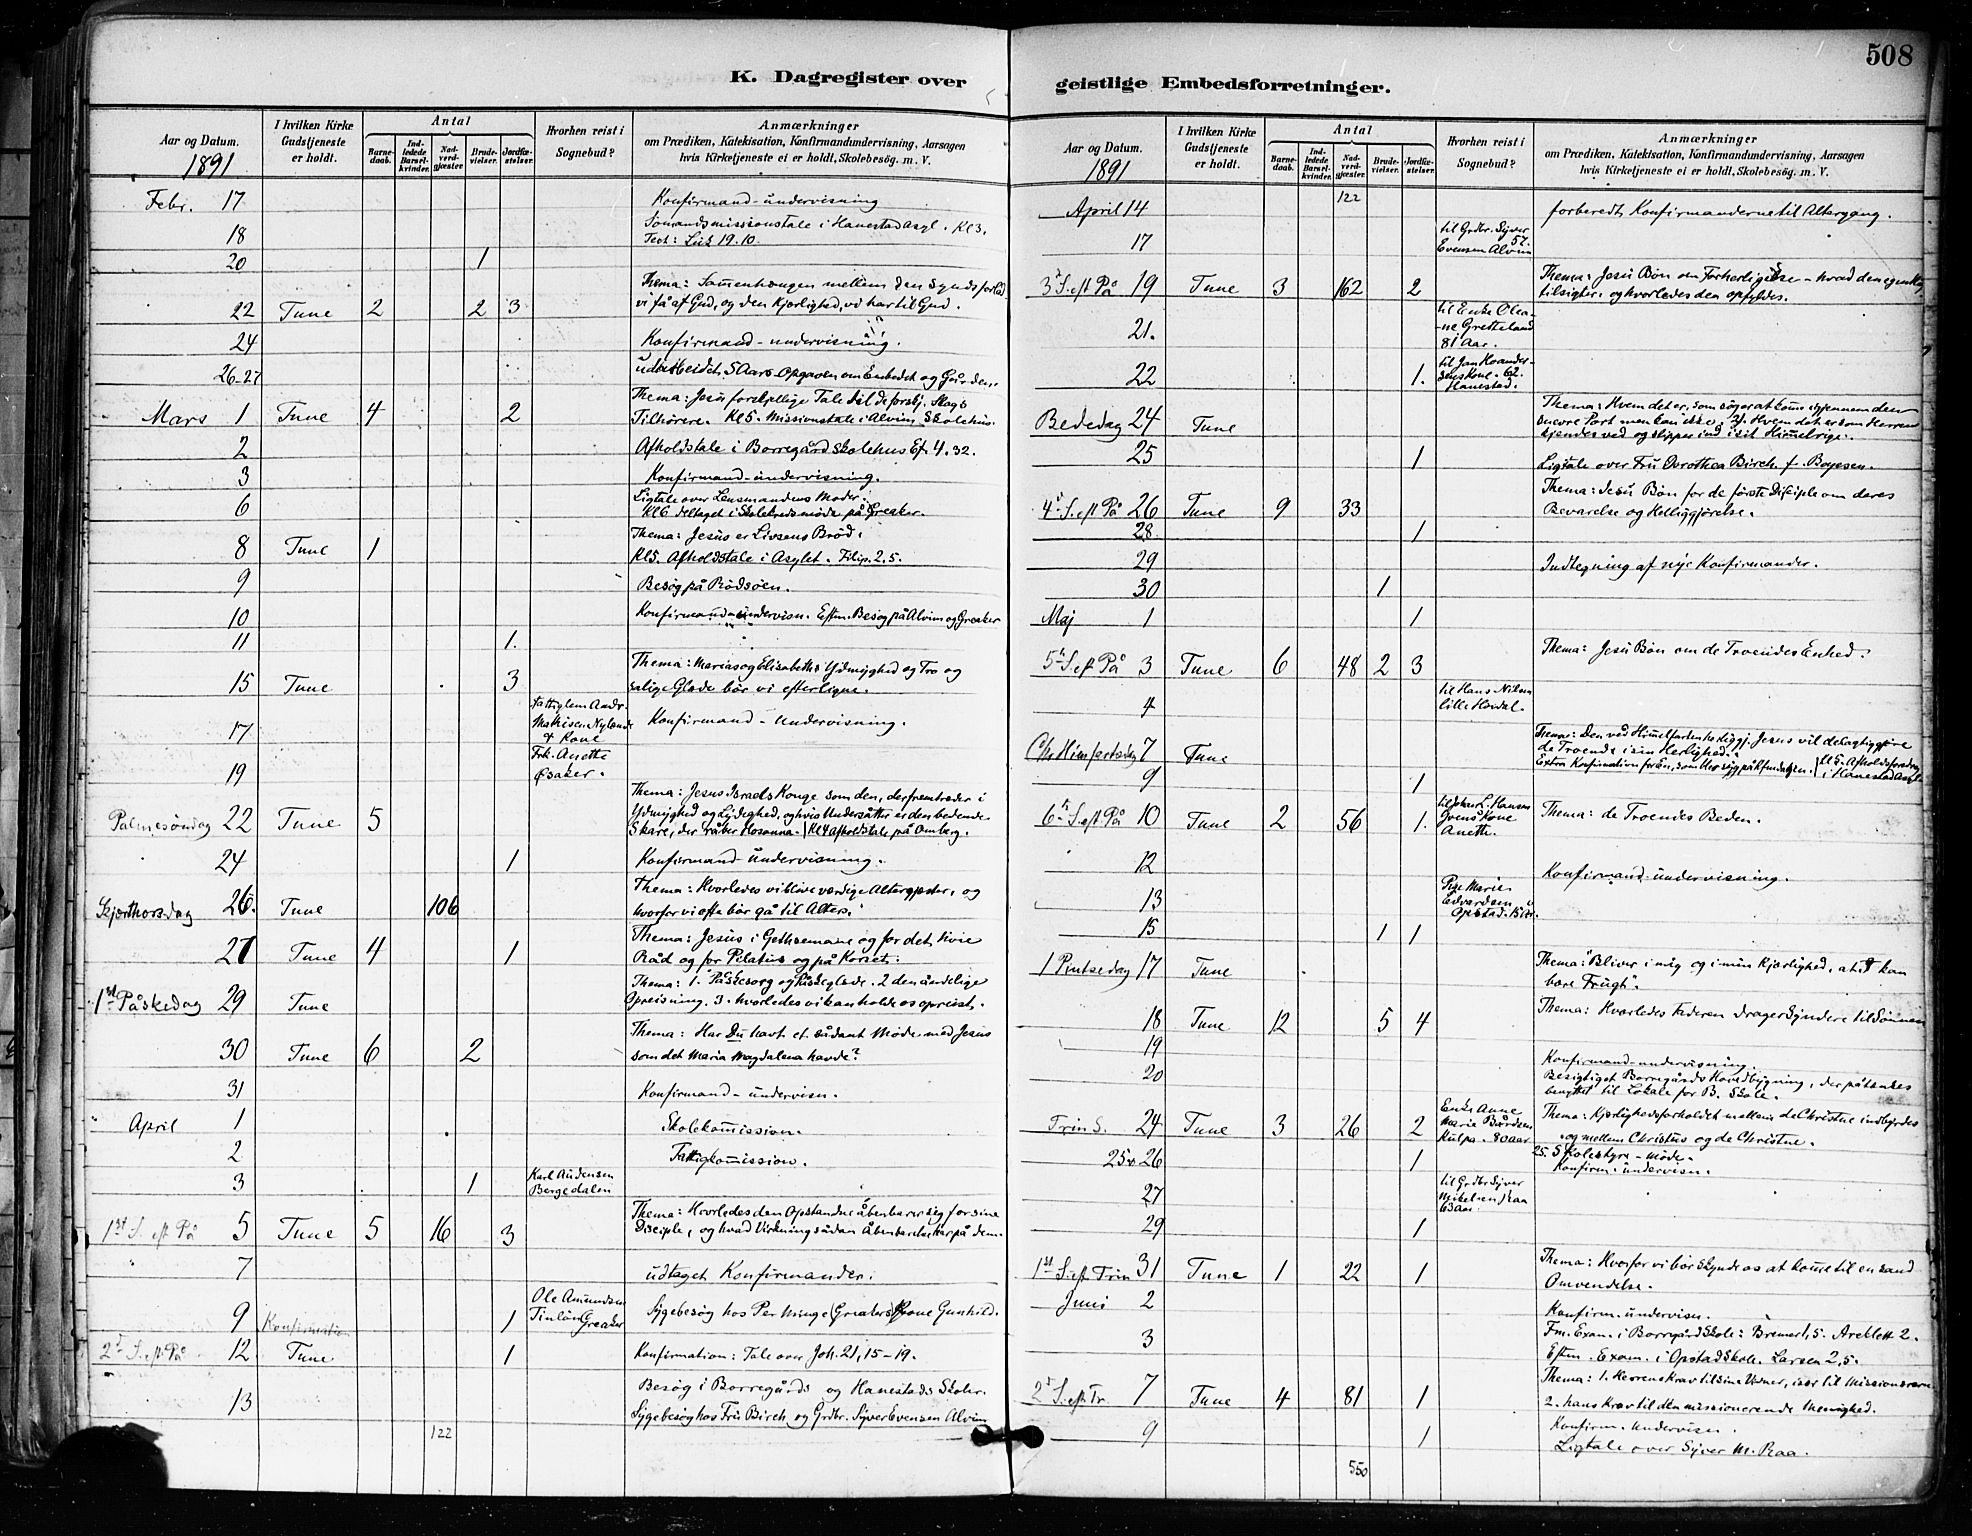 508
K. Dagregister over
Aar og Datum.
1891
I hvilken Kirke
Gudstjeneste
er holdt.
Antal
Barne-
daab.
Ind-
ledede
Barsel-
kvinder.
Nad-
verd-
gjæster
Brude-
vielser.
Jordfæ-
stelser.
Hvorhen reist i
Sognebud?
Anmærkninger
om Prædiken, Katekisation, Konfirmandundervisning, Aarsagen
hvis Kirketjeneste ei er holdt, Skolebesøg. m. V.
Febr. 17 Konfirmand-undervisning
18 Sømandsmissionstale i Hanestad Asyl. Kl 3.
Text: Luk 19.10.
20 1
Thema: Sammenhængen mellem den Synds forlad
22 Tune 2 2 3 vi få af Gud, og den Kjærlighed, vi har til Gud.
24 Konfirmand-undervisning.
26-27 udarbeidet 5 Aars Opgaven om Embedet og Gården.
Thema: Jesu forskjellige Tale til de forskj. Slags
Mars 1 Tune 4 2 Tilhørere. Kl 5. Missionstale i Alvim Skolehus.
2 Afholdstale i Borregård Skolehus Ef. 4.32.
3 Konfirmand-undervisning.
6 Ligtale over Lensmandens Moder.
Kl 6 deltaget i Skolekredsmøde på Greaker.
Thema: Jesus er Livsens Brød.
8 Tune 1 Kl 5. Afholdstale i Asylet. Filip. 2.5.
9 Besøg på Rødsøen.
10 Konfirmandundervisn. Efterm. Besøg på Alvim og Greaker
11 1.
Thema: Marias og Elisabeths Ydmyghed og Tro og
15 Tune 3 salige Glæde bør vi efterligne.
Fattiglem Andr.
17 Mathisen Nylænde Konfirmand-undervisning.
& Kone
Frk. Anette
19 Øsaker.
Thema: Jesus Israels Konge som den, der fremtræder i
Ydmyghed og Lydighed, og hvis Undersåtter er den bedende
Palmesøndag 22 Tune 5 Skare, der råber Hosanna. Kl 4 afholdstale på Omberg.
24 1 Konfirmand-undervisning.
Thema: Hvorledes vi blive værdige Altergjester, og
Skjærthorsdag 26. Tune 106 hvorfor vi ofte bør gå til Alters.
Thema: Jesus i Gethsemane og for det høie
27 Tune 4 1 Råd og for Pilatus og på Korset.
Thema: 1. Påskesorg og Påskeglæde. 2 den åndelige
1st Påskedag 29 Tune Opreisning. 3. hvorledes vi kan holde os opreist.
Thema: Har Du havt et sådant Møde med Jesus
30 Tune 6 2 som det Maria Magdalena havde?
31 Konfirmand-undervisn.
April 1 Skolekommission.
2 Fattigkommission.
3 1 Karl Audensen
Bergedalen
Thema: Hvorledes den Opstandne åbenbarer sig for sine
1st S. eft På 5 Tune 5 16 3 Disciple, og hvad Virkning sådan Åbenbarelse har på dem.
7 udtaget Konfirmander.
Ole Amundsen
9 Konfirmation 1 Greaker Sygebesøg hos Per Minge (Greakers) Kone Gunhild.
2' S. eft På 12 Tune 1 Konfirmation: Tale over Joh. 21, 15-19.
13 Besøg i Borregårds og Hanestads Skoler.
Sygebesøg hos Fru Birch og Grdbr. Syver Evensen Alvim
122
geistlige Embedsforretninger.
Aar og Datum.
1891
I hvilken Kirke
Gudstjeneste
er holdt.
Antal
Barne-
daab.
Ind-
ledede
Barsel-
kvinder.
Nad-
verd-
gjæster
Brude-
vielser.
Jordfæ-
stelser.
Hvorhen reist i
Sognebud?
Anmærkninger
om Prædiken, Katekisation, Konfirmandundervisning, Aarsagen
hvis Kirketjeneste ei er holdt, Skolebesøg. m. V.
122
April 14 forberedt Konfirmanderne til Altergang.
17 til Grdbr. Syver
Evensen Alvim 57.
3' S. eft På 19 Tune 3 162 2 Thema: Jesu Bøn om Forherligelse - hvad den egentlig
tilsigter, og hvorledes den opfyldes.
21. til Enke Olea-
ne Gretteland
81 Aar.
22 1. til Jan
Kone. 62.
Hanestad.
Bededag 24 Tune Thema: Hvem det er, som søger at komme igjennem den
snevre Port men kan ikke. 2. Hvem det er som Herren
kjendes ved og slipper ind i sit Himmelrige.
25 1 Ligtale over Fru Dorothea Birch f. Boyesen.
4' S. eft På 26 Tune 9 33 Thema: Jesu Bøn for de første Disciple om deres
Bevarelse og Helliggjørelse.
28 1
29 Indtegning af nye Konfirmander.
30 1
Maj 1 1
5' S. eft På 3 Tune 6 48 2 3 Thema: Jesu Bøn om de Troendes Enhed.
4 til Hans Nilsen
lille Høidal.
Chr Himfartsdag 7 Tune Thema: Den ved Himmelfarten herliggj. Jesus vil delagtiggjøre
de Troende i sin Herlighed.
Kl 5. Afholdsforedrag
i Hanestad Asyl.
9 1
6' S. eft På 10 Tune 2 56 1. til Johan L. Hansens
Kone
Anette. Thema: de Troendes Beden.
12 Konfirmand-undervisning.
13 Pige Marie
Edvardsen
Opstad. 15 Aar.
15 1 1
1 Pintsedag 17 Tune Thema: "Bliver i mig og i min Kjærlighed, at I kan
bære Frugt".
18 Tune 12 5 4 Thema: Hvorledes Faderen drager Syndere til Sønnen
19 Konfirmand-undervisning.
20 Besigtiget Borregårds Hovedbygning, der påtænkes
benyttet til Lokale for B. Skole.
Trin S. 24 Tune 3 26 2 Enke Anne
Marie Bårdsen
Kulpa. 80 aar Thema: Kjærlighedsforholdet mellem de Christne indbyrdes
og mellem Christus og de Christne.
25 & 26 1 25. Skolestyre-Møde.
Konfirm. undervisn.
27 til Grdbr Syver
Mikelsen Raa
63 Aar.
29 1
1st S. eft Trin 31 Tune 1 22 1 Thema: Hvorfor vi bør skynde os at komme til en sand
Omvendelse.
Juni 2 Konfirm. undervisn.
3 Fm. Exam. i Borregård Skole: Bremert, 5. Areklett 2.
Efterm. Exam. i Opstad Skole. Larsen 2,5.
2' S. eft Tr. 7 Tune 4 81 1 Thema: 1. Herrens krav til sine Vidner, især til Missionærerne
2. hans krav til den missionerende Menighed.
9 1 Konfirm. undervisn.
Ligtale over Syver M. Raa.
550